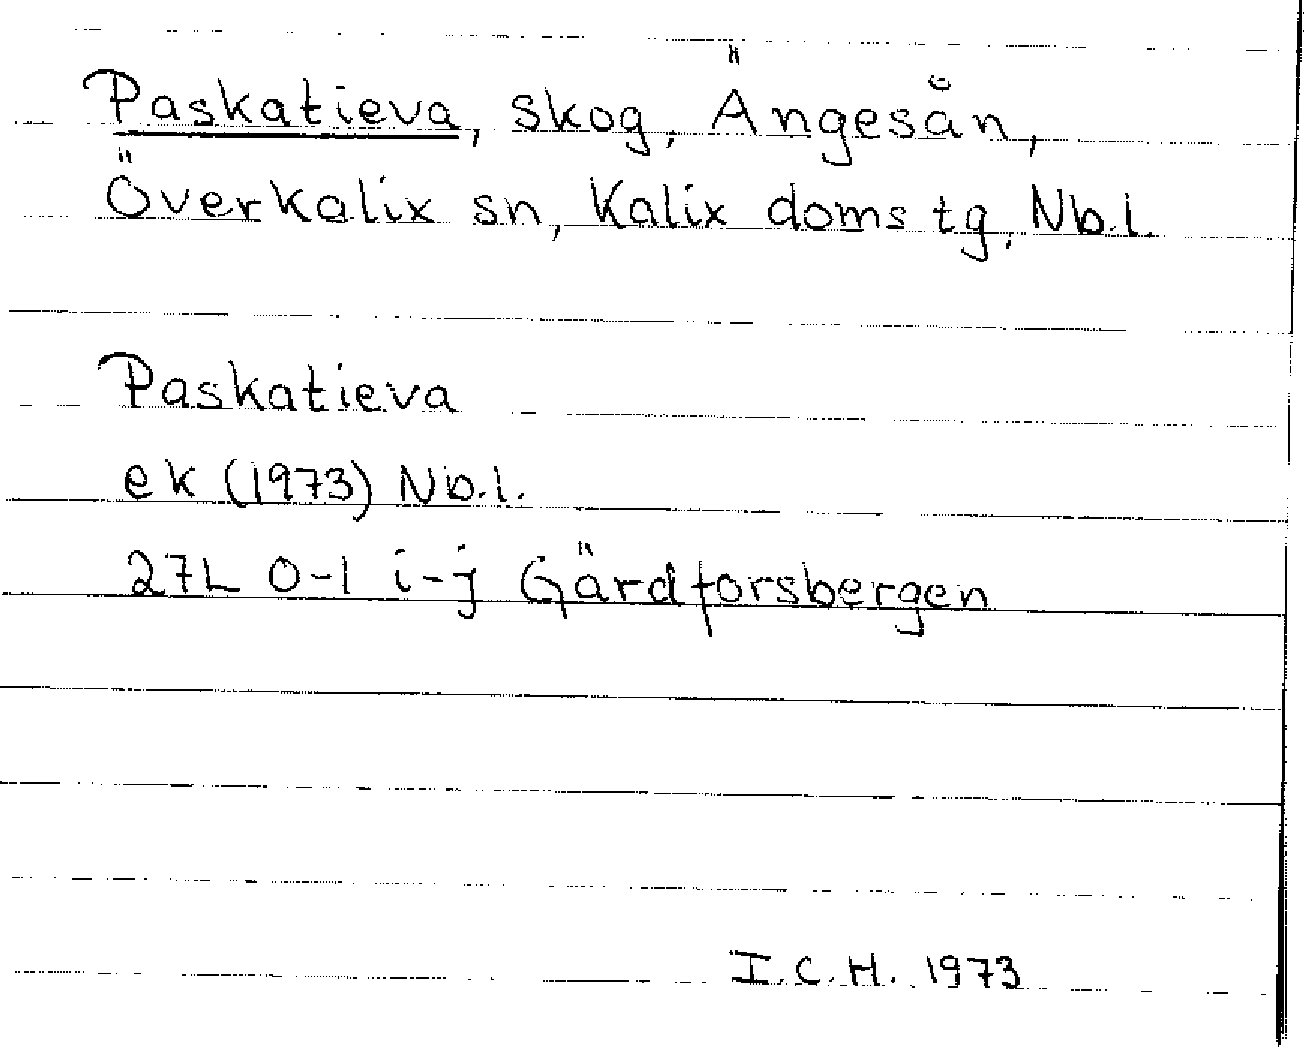 Paskatieva, skog, Ängesån,
Överkalix sn, Kalix doms tg, Nb.l.
Paskatieva
ek (1973) Nb.l.
27L 0-1 i-j Gärdforsbergen
I.C.H. 1973